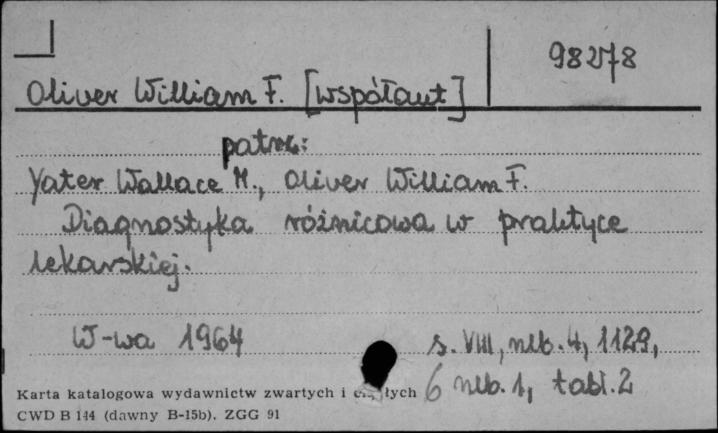 98278
Oliver William F. [współaut]
patrz:
Yater Wallace M., Oliver William F.
Diagnostyka różnicowa w praktyce
lekarskiej.
W-wa 1964
s. VIII, nlb. 4, 1129,
6 nlb. 1, tabl. 2
Karta katalogowa wydawnictw zwartych i ciągłych
CWD B 144 (dawny B-15b). ZGG 91